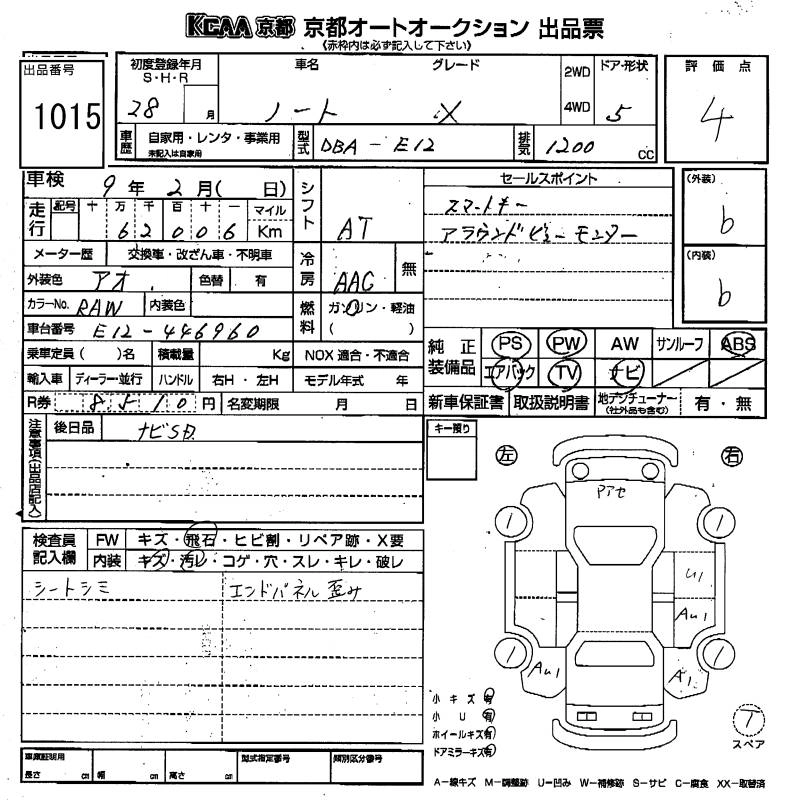 KCAA 京都 京都オートオークション 出品票
(赤枠内は必ず記入して下さい)
出品番号
1015
初度登録年月
S・H・R
28 月
車名 グレード
ノート X
2WD
4WD
ドア・形状
5
評価点
4
車歴 自家用・レンタ・事業用
未記入は自家用
型式 DBA-E12
排気 1200 cc
車検 9年 2月( 日)
走行 記号 十 万 千 百 十 一 マイル
6 2 0 0 6 Km
メーター歴 交換車・改ざん車・不明車
外装色 アオ 色替 有
カラーNo. RAW 内装色
車台番号 E12-446960
乗車定員( )名 積載量 Kg NOX 適合・不適合
輸入車 ディーラー・並行 ハンドル 右H・左H モデル年式 年
R券 8510円 名変期限 月 日
シフト AT
冷房 AAC 無
燃料 ガソリン・軽油
( )
セールスポイント
スマートキー
アラウンドビューモニター
(外装)
b
(内装)
b
純正装備品 PS PW AW サンルーフ ABS
エアバック TV ナビ
新車保証書 取扱説明書 地デジチューナー(社外品も含む) 有・無
注意事項(出品店記入)
後日品 ナビSD
キー預り
左 右
検査員記入欄
FW キズ・飛石・ヒビ割・リペア跡・X要
内装 キズ・汚レ・コゲ・穴・スレ・キレ・破レ
シートシミ エンドパネル歪み
アアセ
U1
AU1
AU1
A1
小キズ 有
小U 有
ホイールキズ 有
ドアミラーキズ 有
T
スペア
車庫証明用
長さ cm 幅 cm 高さ cm
型式指定番号 類別区分番号
A-線キズ M-調整跡 U-凹み W-補修跡 S-サビ C-腐食 XX-取替済